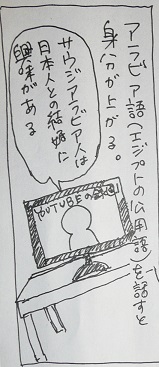 アラビア語(エジプトの公用語)を話すと
身分が上がる。
サウジアラビア人は
日本人との結婚に
興味がある
YOUTUBEの